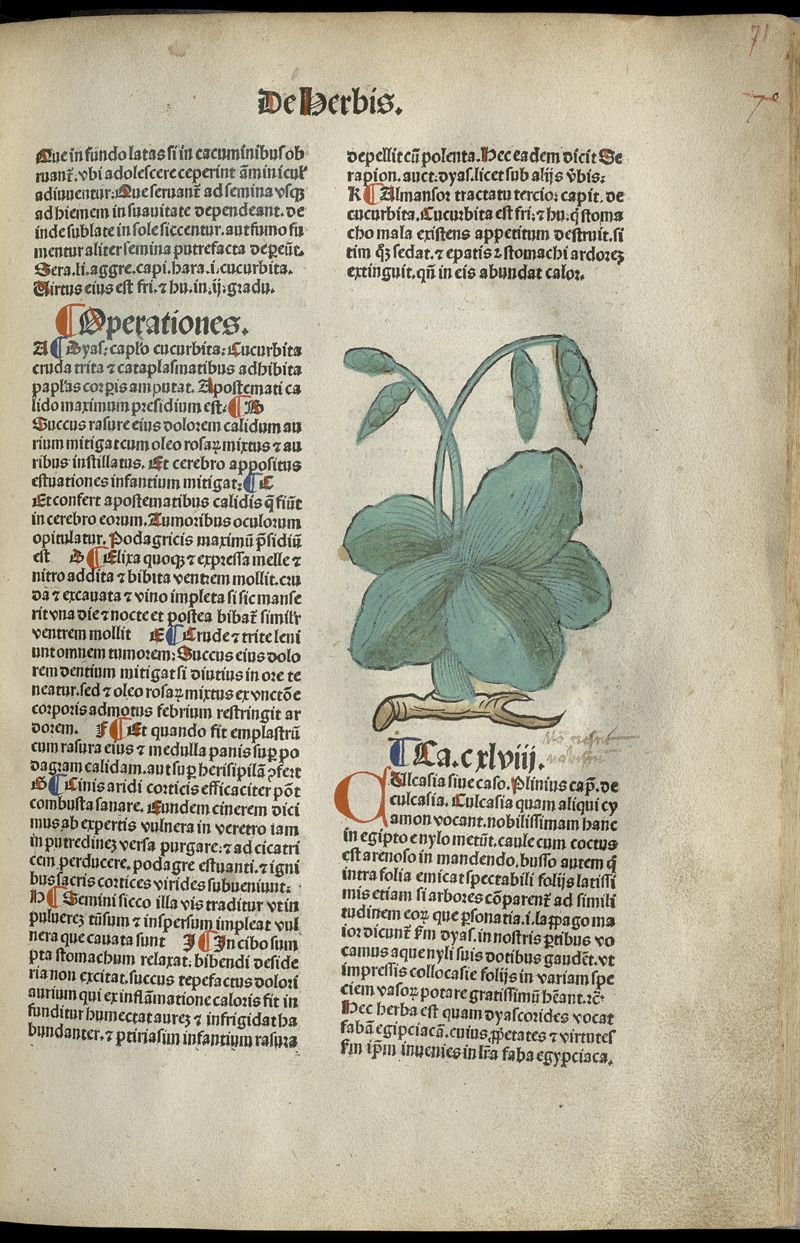 71
70
De Herbis.
Que in fundo latas si in cacuminibus ob
ruant̃. vbi adolescere ceperint ãminicul'
adiuuentur: Que seruant̃ ad semina vsqꝫ
ad hiemem in suauitate dependeant. de
inde sublate in sole siccentur. aut fumo fu
mentur aliter semina putrefacta depeũt.
Sera. li. aggre. capi. hara. i. cucurbita.
Uirtus eius est fri. ⁊ hu. in. ij. gradu.
¶ Operationes.
A ¶ Dyas. caplo cucurbita: Cucurbita
cruda trita ⁊ cataplasmatibus adhibita
paplas corpis amputat. Apostemati ca
lido maximum presidium est: ¶ B
Succus rasure eius dolorem calidum au
rium mitigat cum oleo rosaꝝ mixtus ⁊ au
ribus instillatus. Et cerebro appositus
estuationes infantium mitigat: ¶ C
Et confert apostematibus calidis q̃ fiũt
in cerebro eorum. Tumoribus oculorum
opitulatur. Podagricis maximũ p̃sidiũ
est D ¶ Elixa quoqꝫ ⁊ expressa melle ⁊
nitro addita ⁊ bibita ventrem mollit. cru
da ⁊ excauata ⁊ vino impleta si sic manse
rit vna die ⁊ nocte et postea bibat̃ simil'r
ventrem mollit E ¶ Crude ⁊ trite leni
unt omnem tumorem: Succus eius dolo
rem dentium mitigat si diutius in ore te
neatur. sed ⁊ oleo rosaꝝ mixtus ex vnctõe
corporis admotus febrium restringit ar
dorem. F ¶ Et quando fit emplastrũ
cum rasura eius ⁊ medulla panis sup po
dagram calidam. aut sup herisipilã ꝯfert
G ¶ Cinis aridi corticis efficaciter põt
combusta sanare. Eundem cinerem dici
mus ab expertis vulnera in veretro iam
in putredineꝫ versa purgare: ⁊ ad cicatri
cem perducere. podagre estuanti. ⁊ igni
bus sacris cortices virides subueniunt:
H ¶ Semini sicco illa vis traditur vt in
puluereꝫ tũsum ⁊ inspersum impleat vul
nera que cauata sunt I ¶ In cibo sum
pta stomachum relaxat: bibendi deside
ria non excitat. succus tepefactus dolori
aurium qui ex inflãmatione caloris fit in
funditur humectat aureꝫ ⁊ infrigidat ha
bundanter. ⁊ ptiriasim infantium rasura
depellit cũ polenta. Hec eadem dicit Se
rapion. auct. dyas. licet sub alijs v̾bis:
K ¶ Almansor tractatu tercio: capit. de
cucurbita. Cucurbita est fri. ⁊ hu. q̃ stoma
cho mala existens appetitum destruit. si
tim qꝫ sedat. ⁊ epatis ⁊ stomachi ardoreꝫ
extinguit. qũ in eis abundat calor.
¶ Ca. cxlviij.
Culcasia siue caso. Plinius cap. de
culcasia. Culcasia quam aliqui cy
amon vocant. nobilissimam hanc
in egipto e nylo metũt. caule cum coctus
est arenoso in mandendo. busso autem q̃
intra folia emicat spectabili folijs latissi
mis etiam si arbores cõparent̃ ad simili
tudinem eoꝝ que psonatia. i. lappago ma
ior dicunt̃ fm̃ dyas. in nostris ptibus vo
camus aque nyli suis dotibus gaudet̃. vt
impressis collocasie folijs in variam spe
ciem vasoꝝ potare gratissimũ hẽant. ⁊c̃
Hec herba est quam dyascorides vocat
fabã egipciacã. cuius ꝓpetates ⁊ virtutes
fm̃ ip̃m inuenies in lr̃a faba egypciaca.